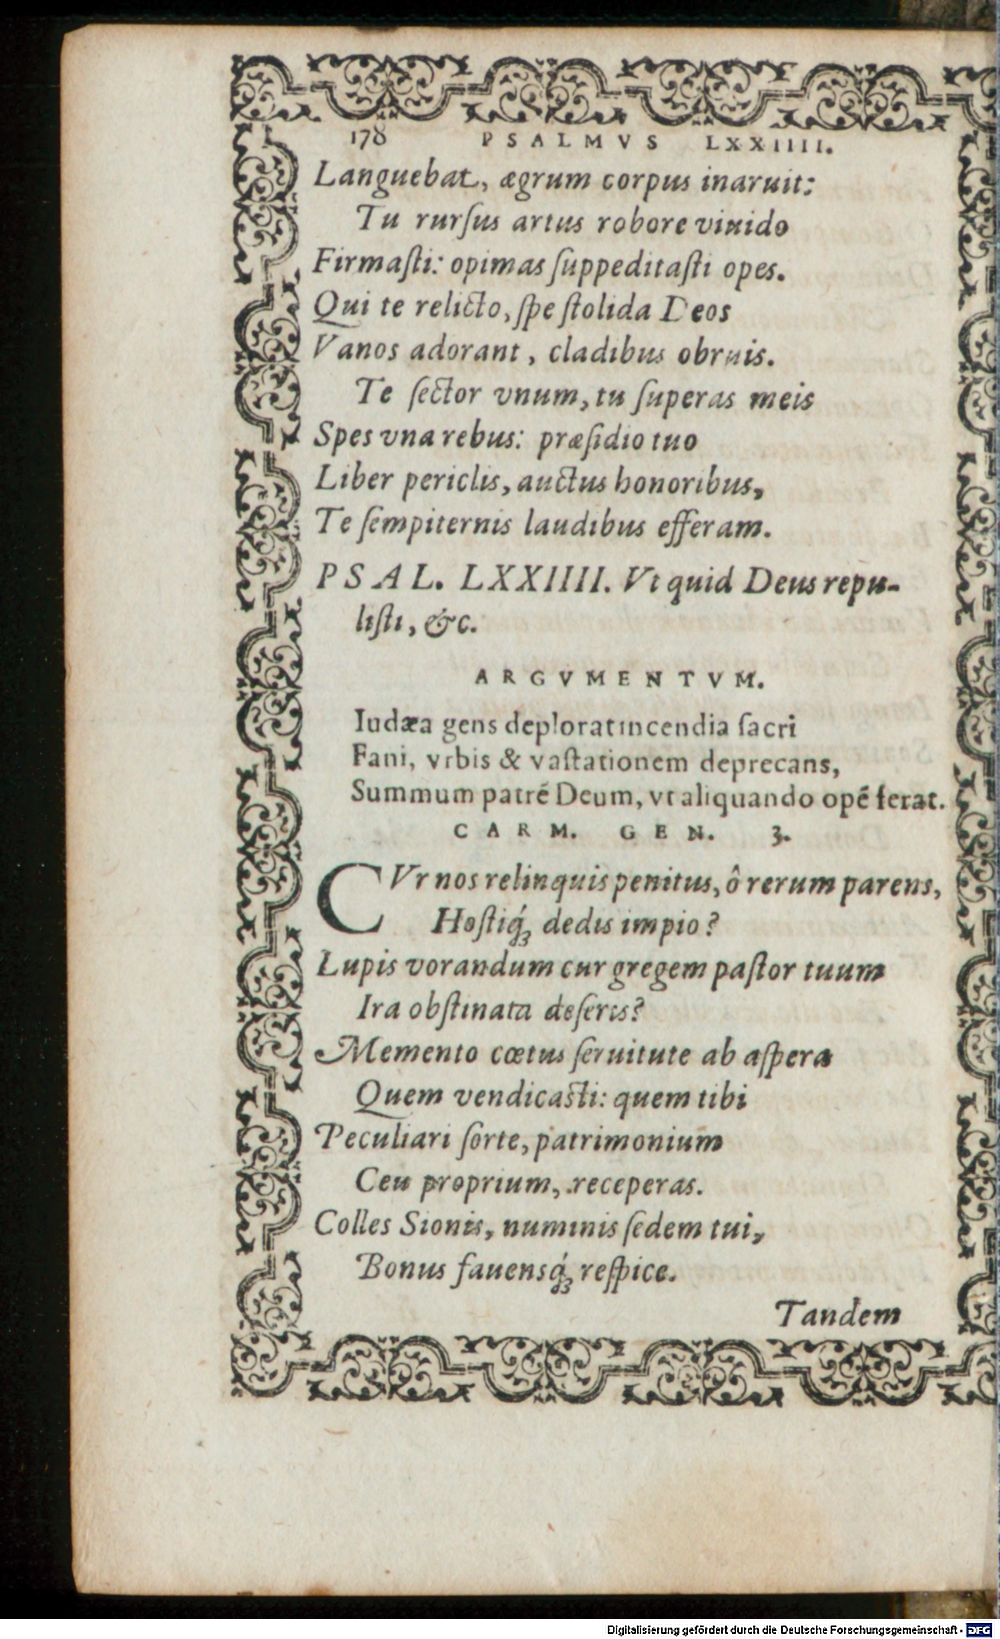 178 PSALMVS LXXIIII.
Languebat, ægrum corpus inaruit:
Tu rurſus artus robore viuido
Firmaſti: opimas ſuppeditaſti opes.
Qui te relicto, ſpe ſtolida Deos
Vanos adorant, cladibus obruis.
Te ſector vnum, tu ſuperas meis
Spes vna rebus: præſidio tuo
Liber periclis, auctus honoribus,
Te ſempiternis laudibus efferam.
PSAL. LXXIIII. Vt quid Deus repu-
liſti, &c.
ARGVMENTVM.
Iudæa gens deplorat incendia ſacri
Fani, vrbis & vaſtationem deprecans,
Summum patrē Deum, vt aliquando opē ferat.
CARM. GEN. 3.
CVr nos relinquis penitus, ô rerum parens,
Hoſtiq́; dedis impio?
Lupis vorandum cur gregem paſtor tuum
Ira obſtinata deſeris?
Memento cœtus ſeruitute ab aſpera
Quem vendicaſti: quem tibi
Peculiari ſorte, patrimonium
Ceu proprium, receperas.
Colles Sionis, numinis ſedem tui,
Bonus fauensq́; reſpice.
Tandem
Digitalisierung gefördert durch die Deutsche Forschungsgemeinschaft - DFG